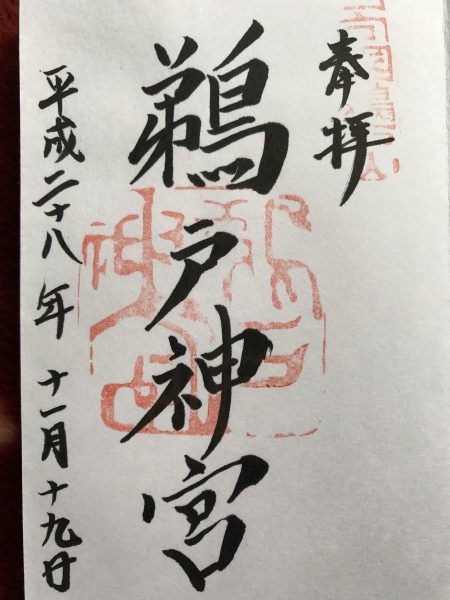 奉拝
鵜戸神宮
平成二十八年十一月十九日